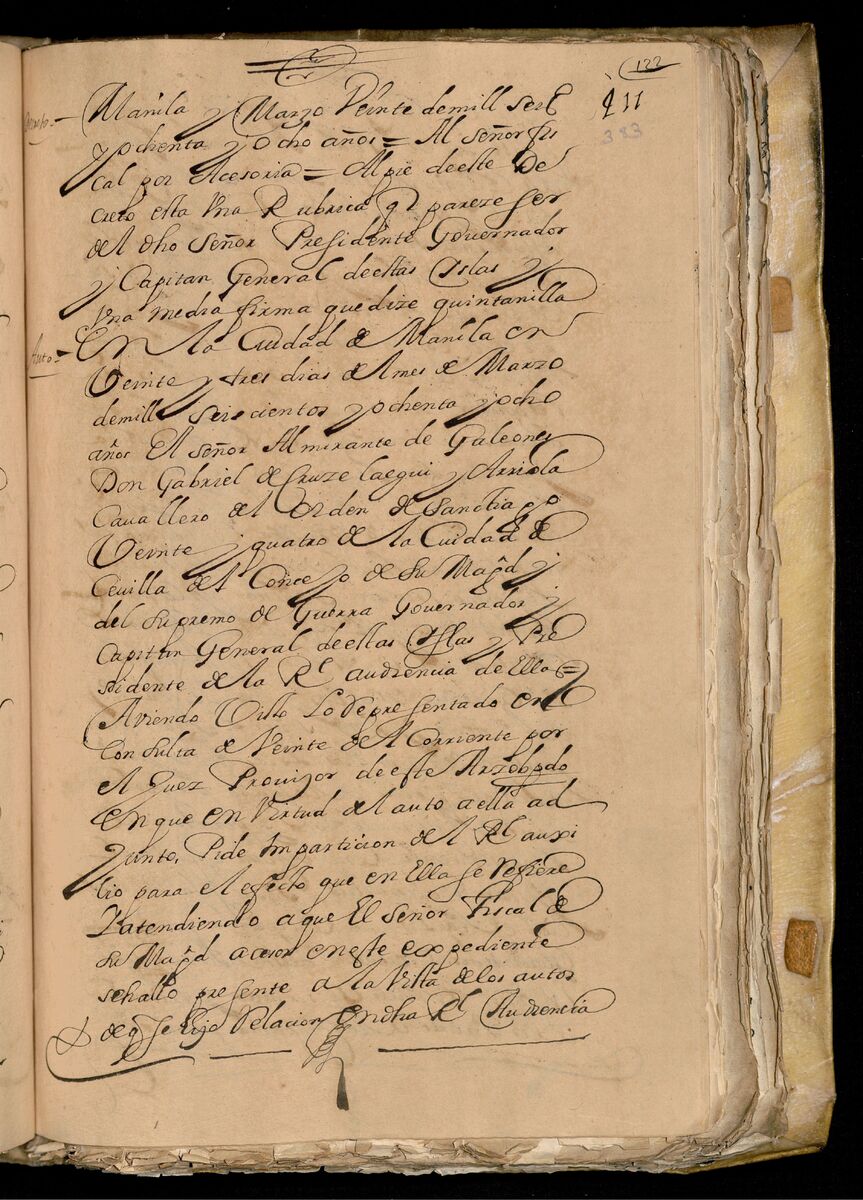 122
211
383
Decreto =
Manila y Marzo Veinte demill seise
y ochenta y ocho años = Al señor fis
cal por Acesoria = Al pie deeste De
creto esta Vna Rubrica q̃ pareze ser
del dho Señor Presidente Governador
y Capitan General deestas Yslas y
Vna media firma que dize quintanilla
Auto =
En la Ciudad de Manila en
Veinte y tres dias del mes de Marzo
demill seiscientos y ochenta y ocho
años El señor Almirante de Galeones
Don Gabriel de Cruzelaegui y Arriola
Cavallero del Orden de Sanctiago
Veinte y quatro de la Ciudad de
Cevilla del Concejo de su Mag.d y
del supremo de Guerra Governador y
Capitan General deestas Yslas y Pre
sidente de la R.l audiencia de Ella =
Aviendo Visto Lo Representado en
Consulta de Veinte del Corriente por
el Juez Provisor deeste Arzobpdo
En que en Virtud del auto aella ad
Junto, Pide Imparticion del R.l auxi
lio para el efecto que en Ella se Refiere
Y atendiendo a que El señor Fiscal de
su Mag.d acesor eneste expediente
sehallo presente a la Vista delos autos
de q̃ se hizo Relacion en dha R.l Audiencia